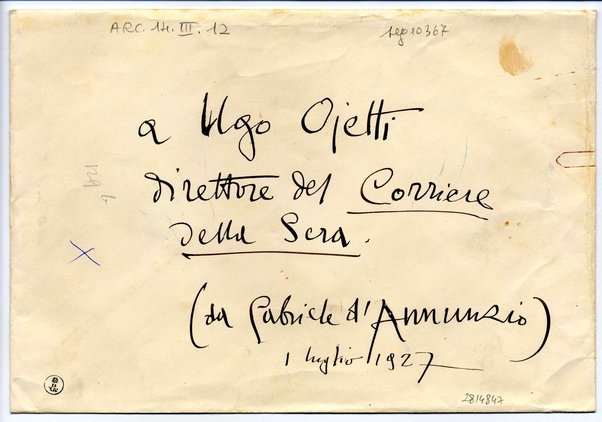 ARC. 14. III. 12
a Ugo Ojetti
direttore del Corriere
della Sera.
(da Gabriele d'Annunzio)
1 luglio 1927
2814847